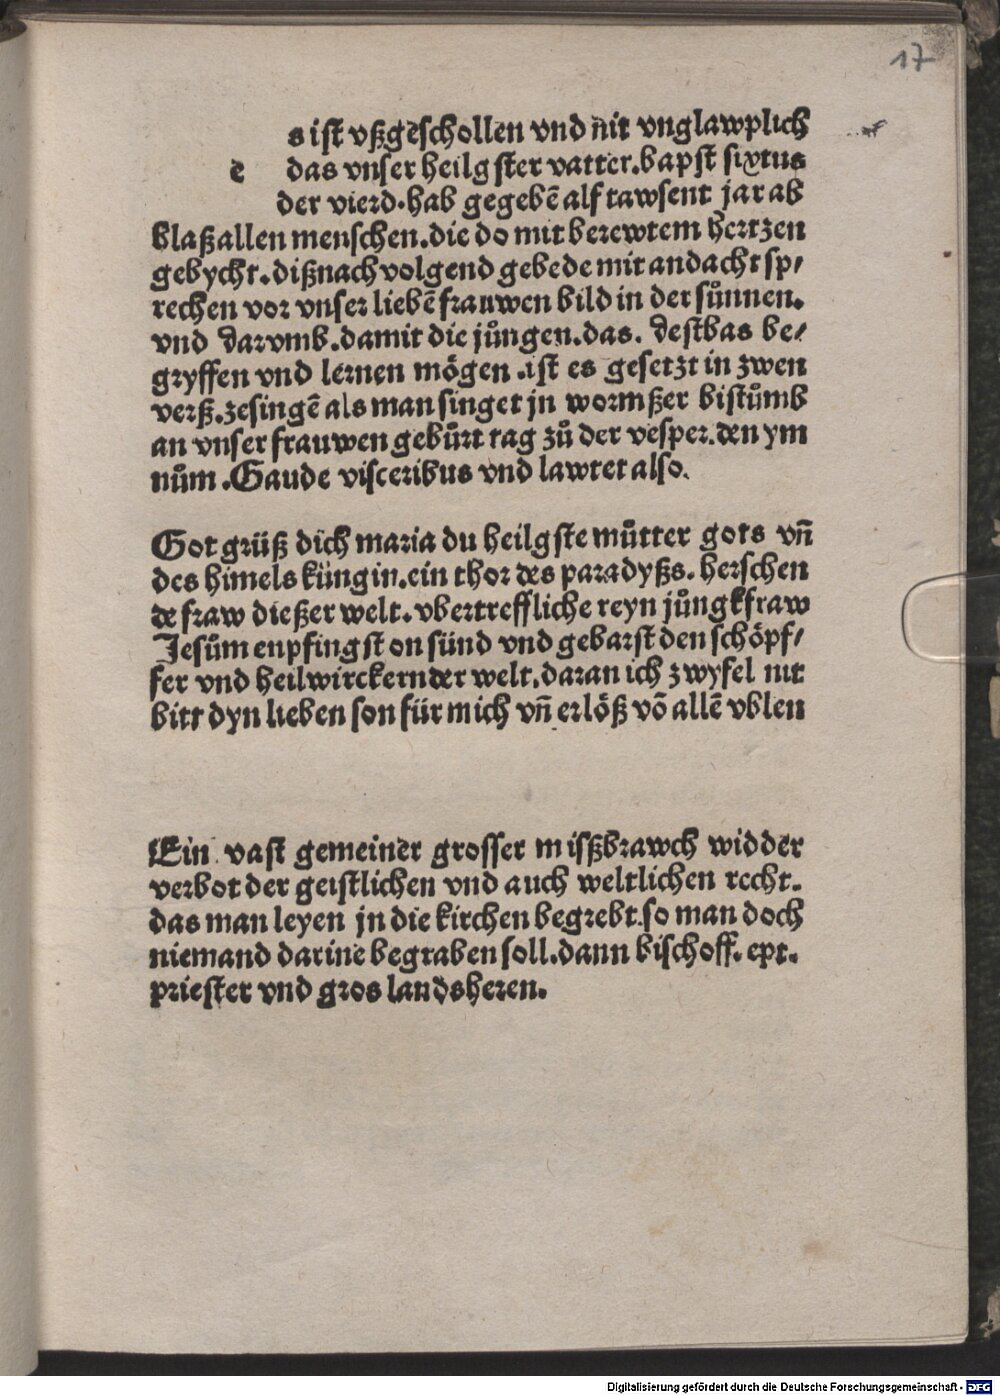 17
s ist vßgeschollen vnd nit vnglawplich
e das vnser heilgster vatter.bapst sixtus
der vierd.hab gegebē alf tawsent jar ab
blaß allen menschen.die do mit berewtem hertzen
gebycht.dißnachvolgend gebede mit andacht sp/
rechen vor vnser liebē frauwen bild in der sůnnen.
vnd darvmb.damit die jůngen.das. destbas be/
gryffen vnd lernen mögen .ist es gesetzt in zwen
verß.zesingē als man singet jn wormßer bistůmb
an vnser frauwen gebůrt tag zů der vesper.den ym
nům .Gaude visceribus vnd lawtet also.
Got grüß dich maria du heilgste můtter gots vn̄
des himels küngin.ein thor des paradyßs. herschen
de fraw dießer welt.vbertreffliche reyn jůngkfraw
Jesům enpfingst on sünd vnd gebarst den schöpf/
fer vnd heilwirckern der welt.daran ich zwyfel nit
bitt dyn lieben son für mich vn̄ erlöß vō allē vblen
Ein vast gemeiner grosser misßbrawch widder
verbot der geistlichen vnd auch weltlichen recht.
das man leyen jn die kirchen begrebt.so man doch
niemand darine begraben soll.dann bischoff. ept.
priester vnd gros landsheren.
Digitalisierung gefördert durch die Deutsche Forschungsgemeinschaft - DFG